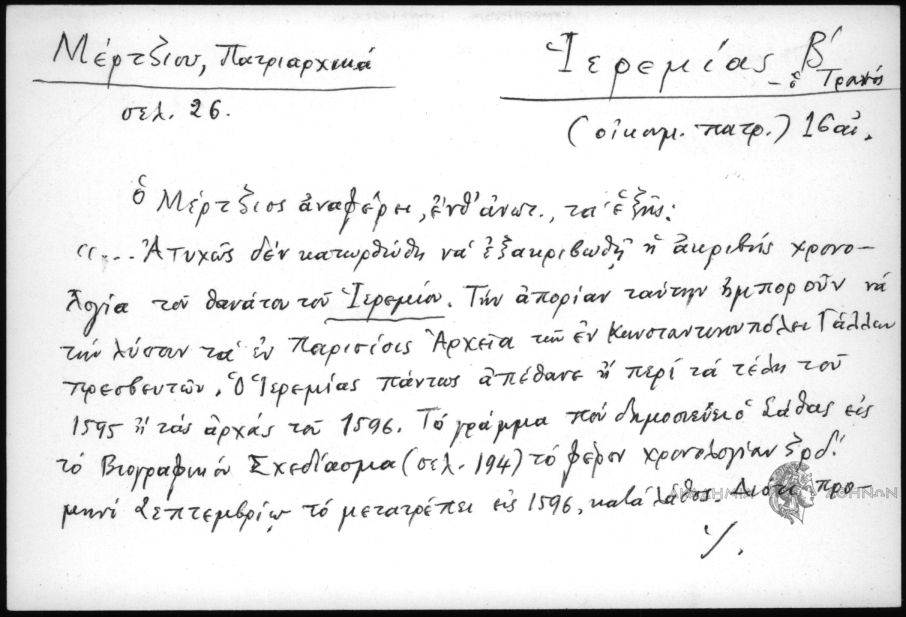 Μέρτζιου, Πατριαρχικά
σελ. 26.
Ἰερεμίας Β΄
- ὁ Τρανός
(οἰκουμ. πατρ.) 16 αἰ.
Ὁ Μέρτζιος ἀναφέρει, ἔνθ' ἀνωτ., τὰ ἑξῆς:
"... Ἀτυχῶς δὲν κατωρθώθη νὰ ἐξακριβωθῇ ἡ ἀκριβὴς χρονο-
λογία τοῦ θανάτου τοῦ Ἱερεμίου. Τὴν ἀπορίαν ταύτην ἠμποροῦν νὰ
τὴν λύσουν τὰ ἐν Παρισίοις Ἀρχεῖα τῶν ἐν Κωνσταντινουπόλει Γάλλων
πρεσβευτῶν. Ὁ Ἱερεμίας πάντως ἀπέθανε ἢ περὶ τὰ τέλη τοῦ
1595 ἢ τὰς ἀρχὰς τοῦ 1596. Τὸ γράμμα ποὺ δημοσιεύει ὁ Σάθας εἰς
τὸ Βιογραφικὸν Σχεδίασμα (σελ. 194) τὸ φέρον χρονολογίαν ζρδ΄
μηνὶ Σεπτεμβρίῳ τὸ μετατρέπει εἰς 1596, κατὰ λάθος. Διότι προ-
./.